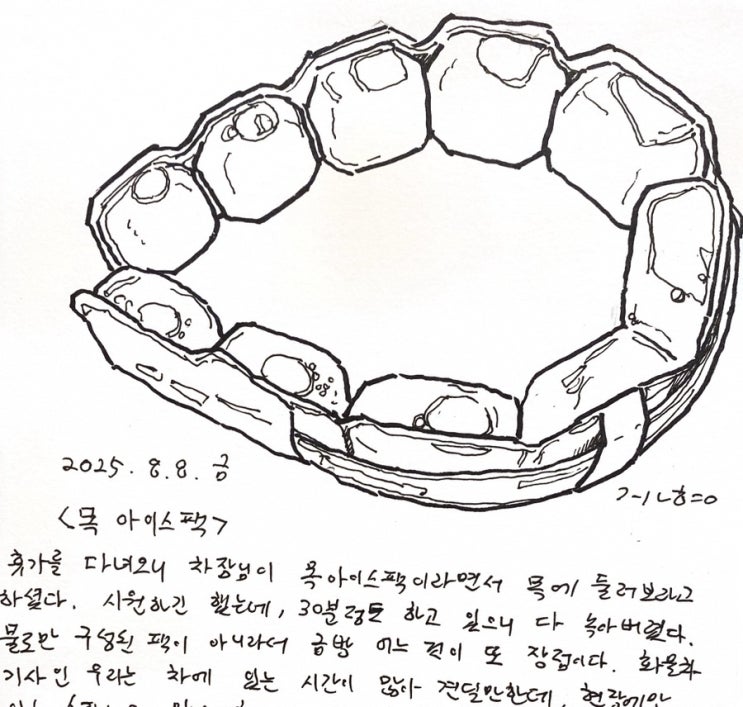 2025. 8. 8. 금
<목 아이스팩>
휴가를 다녀오니 차장님이 목아이스팩이라면서 목에 둘러보라고
하셨다. 시원하긴 했는데, 30분정도 하고 있으니 다 녹아버렸다.
물로만 구성된 팩이 아니라서 금방 어는 점이 또 장점이다. 화물차
기사인 우리는 차에 있는 시간이 많아 견딜만한데, 현장에만